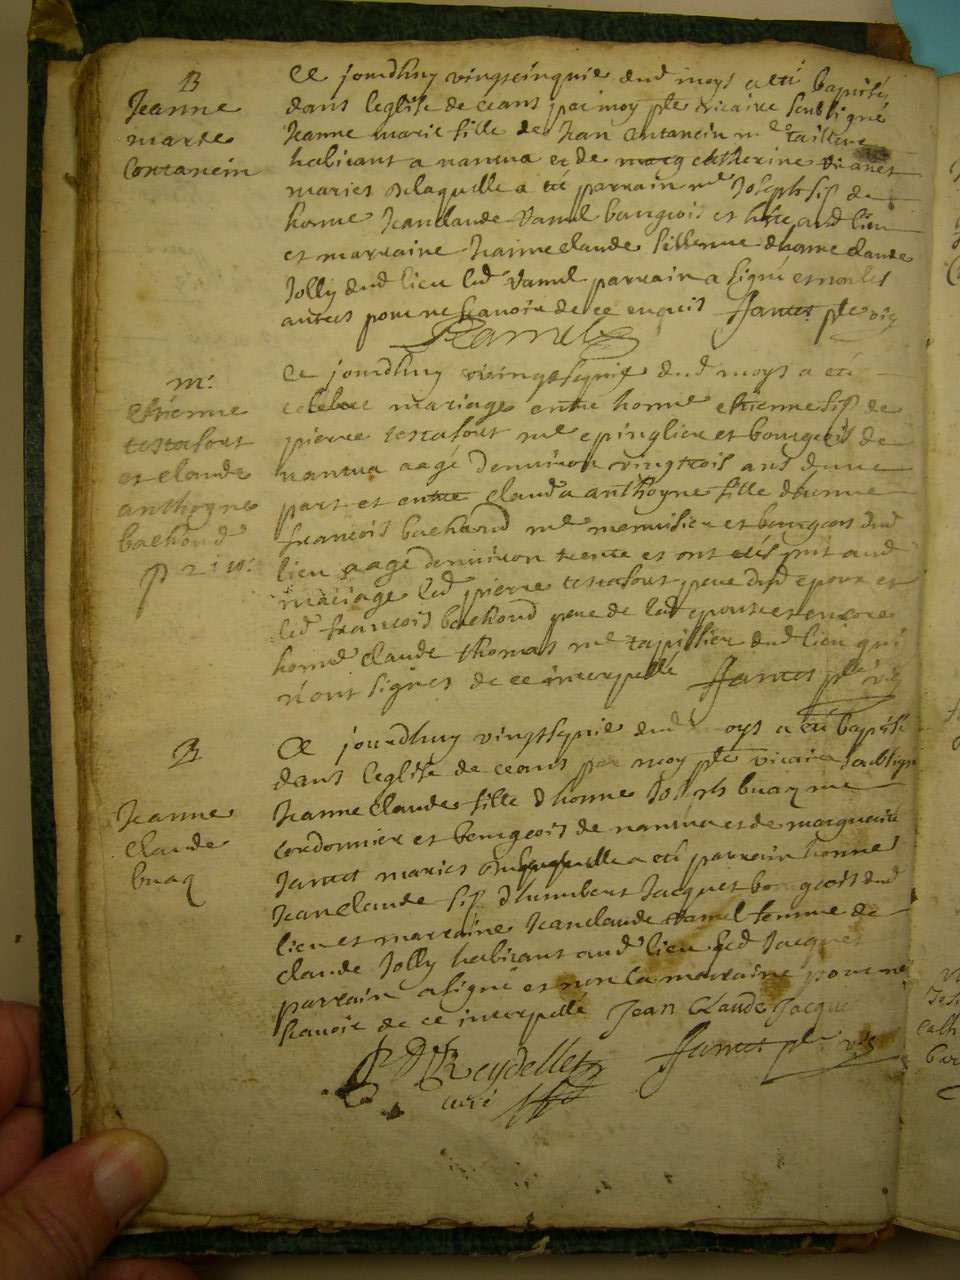 B
Jeanne
marie
Contancin
Ce jourdhuy vingtcinquie dud moys a eté baptisé
dans leglise de ceans par moy ptre vicaire soubsigné
Jeanne marie fille de Jean Contancin me tailleur
habitant a nantua et de catherine
maries de laquelle a eté parrain me Joseph fis de
home Jeanclaude Ramel bourgeois et hôte aud lieu
et marraine Jeanneclaude fille dhonne claude
Jolly dud lieu led Ramel parrain a signé et non les
autres pour ne scavoir de ce enquis Jantet ptre vic
Ramel
m:
Estienne
testafort
et claude
anthoyne
bachond
Ce jourdhuy vingtseptie dud moys a eté
celebre mariage entre honne estienne fis de
pierre testafort me epinglier et bourgeois de
nantua aagé denviron vingttrois ans dune
part et entre clauda anthoyne fille dhonne
francois bachond me menuisier et bourgeois dud
lieu aagé denviron trente et ont eté pnt aud
mariage led pierre testafort pere dud epoux et
led francois bachond pere de lad epouse et encore
honne claude thomas me tapissier dud lieu qui
n'ont signes de ce interpellé Jantet ptre vic
B
Jeanne
claude
buaq
Ce jourdhuy vingtseptie dud moys a eté baptisé
dans leglise de ceans par moy ptre vicaire soubsigne
Jeanneclaude fille d honne Joseph buaq me
cordonnier et bourgeois de nantua et de marguerite
Jantet maries de laquelle a eté parrain honne
Jeanclaude fis d humbert Jacquet bourgeois dud
lieu et marraine Jeanclaude Ramel femme de
claude Jolly habitant aud lieu led Jacquet
parrain a signé et non la marraine pour ne
scavoir de ce interpellé Jean Claude Jacque
Reydellet Jantet ptre vic
curé